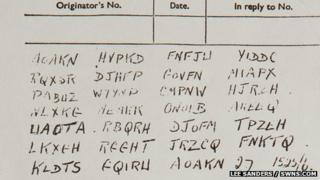 Originator's No. Date. In reply to No.
AOAKN HVPKD FNFJU YIDDC
RQXSR DJHFP GOVFN MIAPX
PABUZ WYYNP CMPNW HJRZH
NLXKG MEMKK ONOIB AKEEQ
UAOTA RBQRH DJOFM TPZEH
LKXGH RGGHT JRZCQ FNKTQ
KLDTS FQIRU AOAKN 27
LEE SANDERS / SWNS.COM